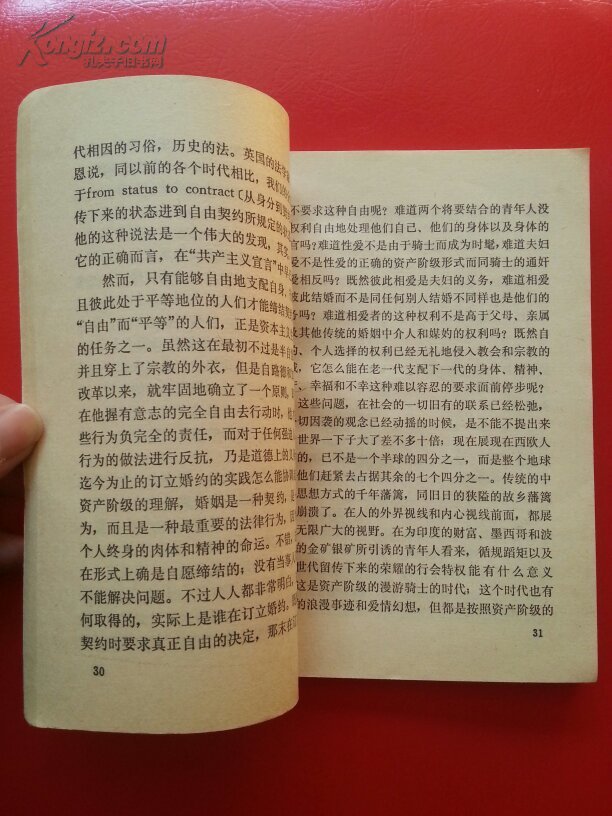 Kongfz.com
孔夫子旧书网
代相因的习俗，历史的法。英国的法学
恩说，同以前的各个时代相比，我们的
于from status to contract〔从身分到
传下来的状态进到自由契约所规定的
他的这种说法是一个伟大的发现，其实
它的正确而言，在“共产主义宣言”中早
然而，只有能够自由地支配自身、
且彼此处于平等地位的人们才能缔结契
“自由”而“平等”的人们，正是资本主义
的任务之一。虽然这在最初不过是半自
并且穿上了宗教的外衣，但是自路德和
改革以来，就牢固地确立了一个原则，
在他握有意志的完全自由去行动时，他
些行为负完全的责任，而对于任何强迫
行为的做法进行反抗，乃是道德上的义
迄今为止的订立婚约的实践怎么能协调
资产阶级的理解，婚姻是一种契约，是
为，而且是一种最重要的法律行为，因
个人终身的肉体和精神的命运。不错，
在形式上确是自愿缔结的；没有当事人
不能解决问题。不过人人都非常明白，
何取得的，实际上是谁在订立婚约。
契约时要求真正自由的决定，那末在订
30
不要求这种自由呢？难道两个将要结合的青年人没
权利自由地处理他们自己、他们的身体以及身体的
官吗？难道性爱不是由于骑士而成为时髦，难道夫妇
爱不是性爱的正确的资产阶级形式而同骑士的通奸
爱相反吗？既然彼此相爱是夫妇的义务，难道相爱
彼此结婚而不是同任何别人结婚不同样也是他们的
务吗？难道相爱者的这种权利不是高于父母、亲属
及其他传统的婚姻中介人和媒妁的权利吗？既然自
、个人选择的权利已经无礼地侵入教会和宗教的
，它怎么能在老一代支配下一代的身体、精神、
、幸福和不幸这种难以容忍的要求面前停步呢？
这些问题，在社会的一切旧有的联系已经松弛，
切因袭的观念已经动摇的时候，是不能不提出来
世界一下子大了差不多十倍；现在展现在西欧人
的，已不是一个半球的四分之一，而是整个地球
他们赶紧去占据其余的七个四分之一。传统的中
思想方式的千年藩篱，同旧日的狭隘的故乡藩篱
崩溃了。在人的外界视线和内心视线前面，都展
无限广大的视野。在为印度的财富、墨西哥和波
的金矿银矿所引诱的青年人看来，循规蹈矩以及
世代留传下来的荣耀的行会特权能有什么意义
这是资产阶级的漫游骑士的时代；这个时代也有
的浪漫事迹和爱情幻想，但都是按照资产阶级的
31